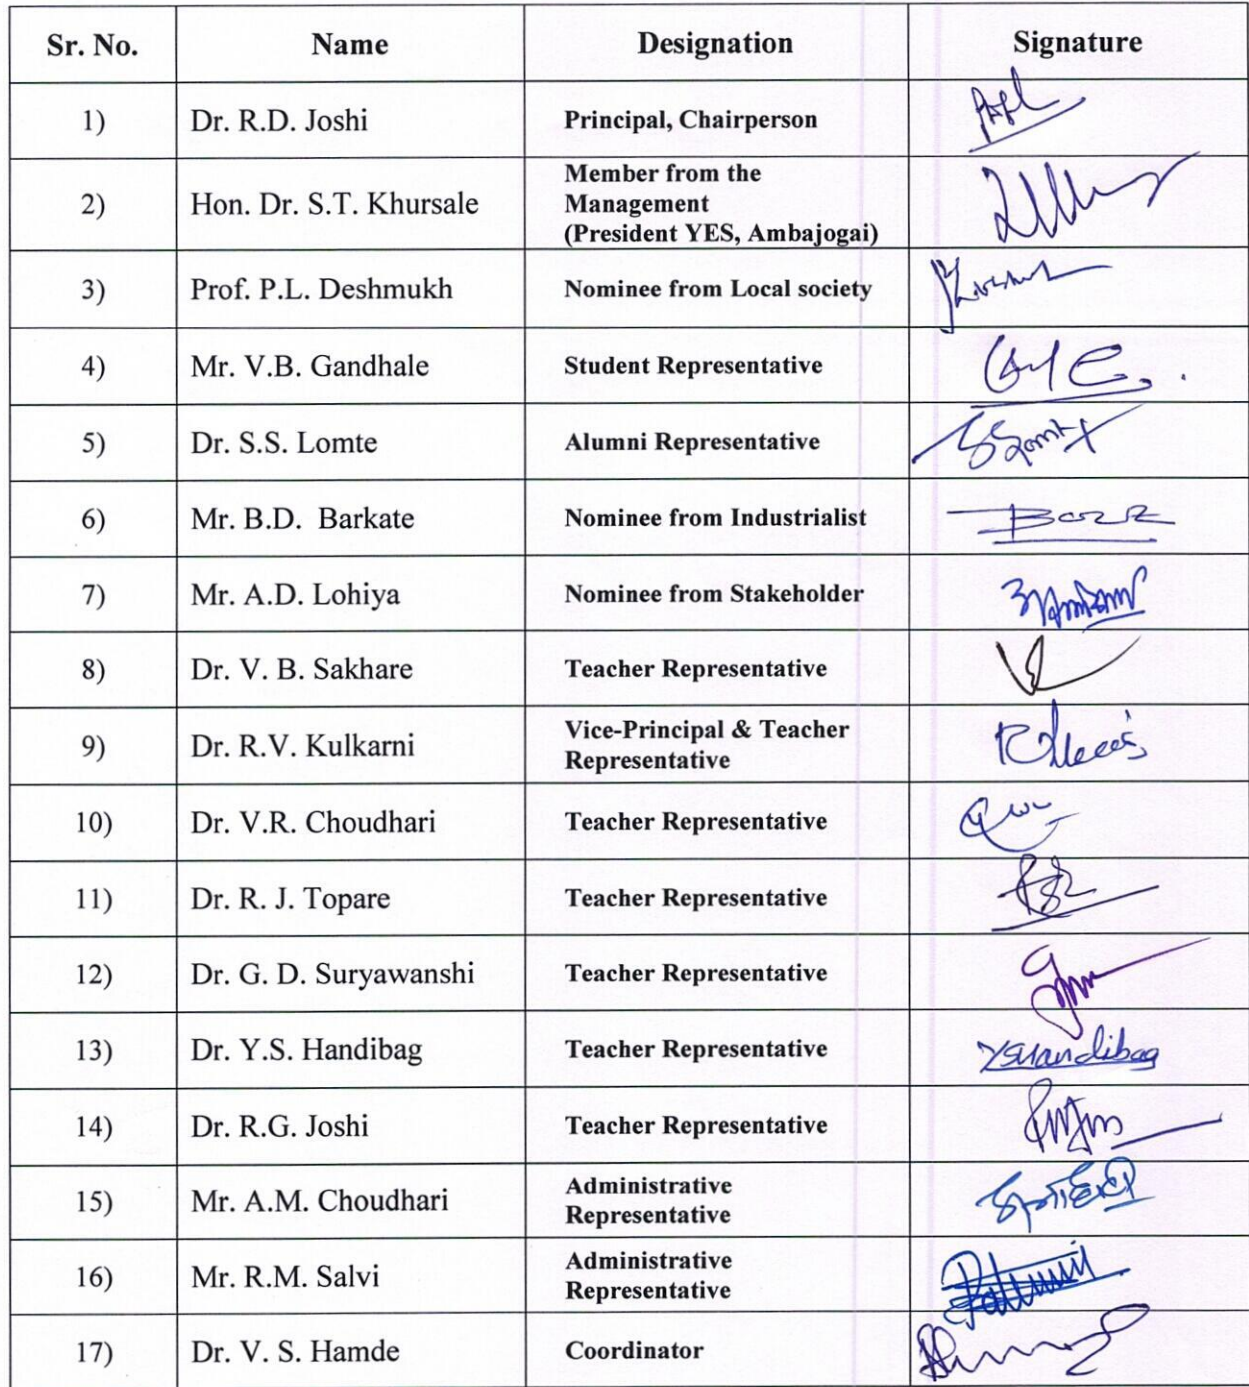 Sr. No. Name Designation Signature
1) Dr. R.D. Joshi Principal, Chairperson
2) Hon. Dr. S.T. Khursale Member from the
Management
(President YES, Ambajogai)
3) Prof. P.L. Deshmukh Nominee from Local society
4) Mr. V.B. Gandhale Student Representative
5) Dr. S.S. Lomte Alumni Representative
6) Mr. B.D. Barkate Nominee from Industrialist
7) Mr. A.D. Lohiya Nominee from Stakeholder
8) Dr. V. B. Sakhare Teacher Representative
9) Dr. R.V. Kulkarni Vice-Principal & Teacher
Representative
10) Dr. V.R. Choudhari Teacher Representative
11) Dr. R. J. Topare Teacher Representative
12) Dr. G. D. Suryawanshi Teacher Representative
13) Dr. Y.S. Handibag Teacher Representative YSHandibag
14) Dr. R.G. Joshi Teacher Representative
15) Mr. A.M. Choudhari Administrative
Representative
16) Mr. R.M. Salvi Administrative
Representative
17) Dr. V. S. Hamde Coordinator